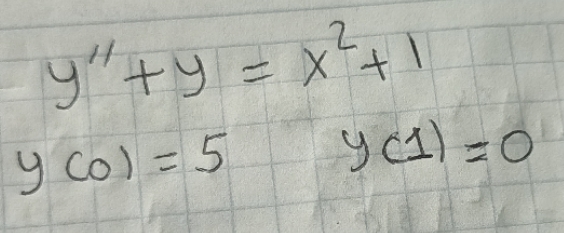 y'' + y = x² + 1
y(0) = 5 y(1) = 0